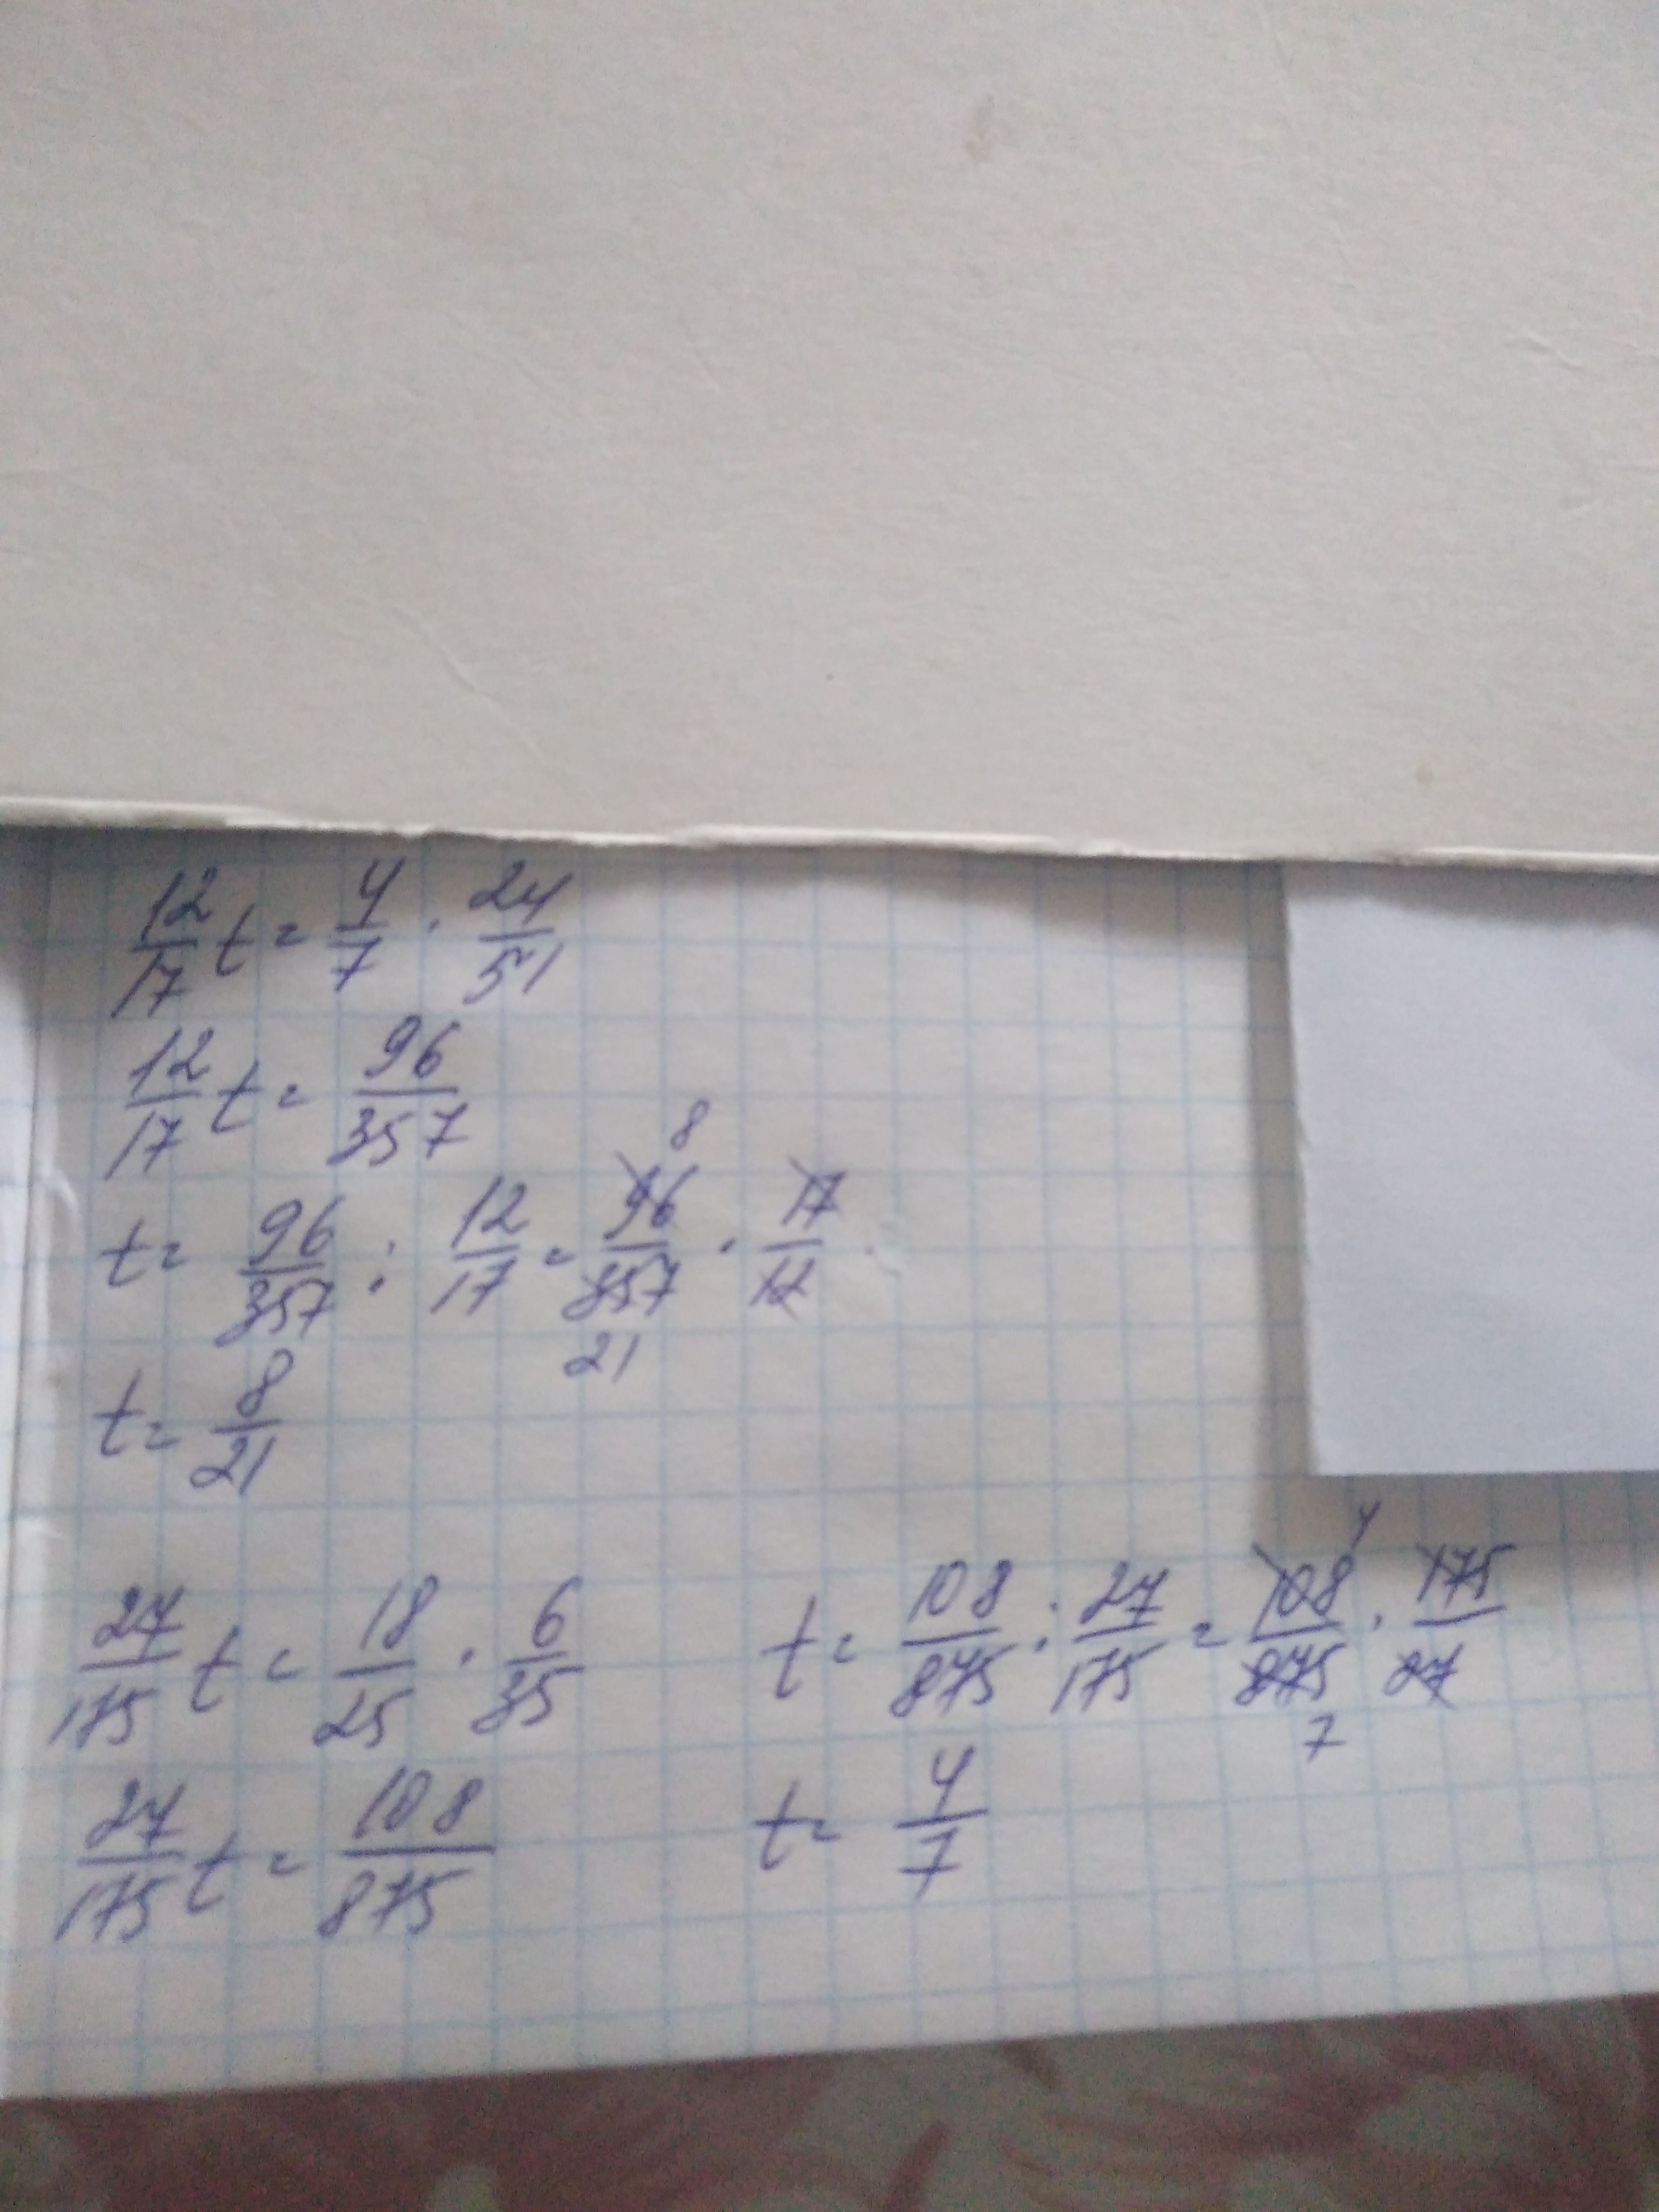 12/17 t = 4/7 · 24/51
12/17 t = 96/357
t = 96/357 : 12/17 = 96/357 · 17/12
8
21
t = 8/21
27/175 t = 18/25 · 6/35
27/175 t = 108/875
t = 108/875 : 27/175 = 108/875 · 175/27
4
7
t = 4/7